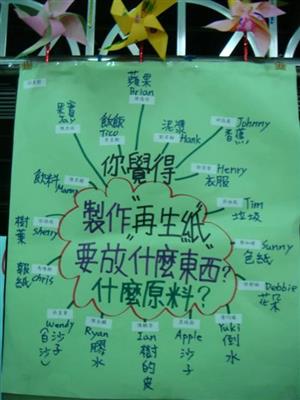 蘋果
Brian
果實
Jay
飲飲
Tico
泥漿
Hank
Johnny
香蕉
你覺得
Henry
衣服
飲料
Manny
"製作"再生紙"
要放"什麼東西?
什麼原料?
Tim
垃圾
樹葉
Sherry
Sunny
色紙
報紙
Chris
Debbie
花朵
Wendy
沙子
(白沙)
Ryan
膠水
Ian
樹的皮
Apple
沙子
Yuki
倒水